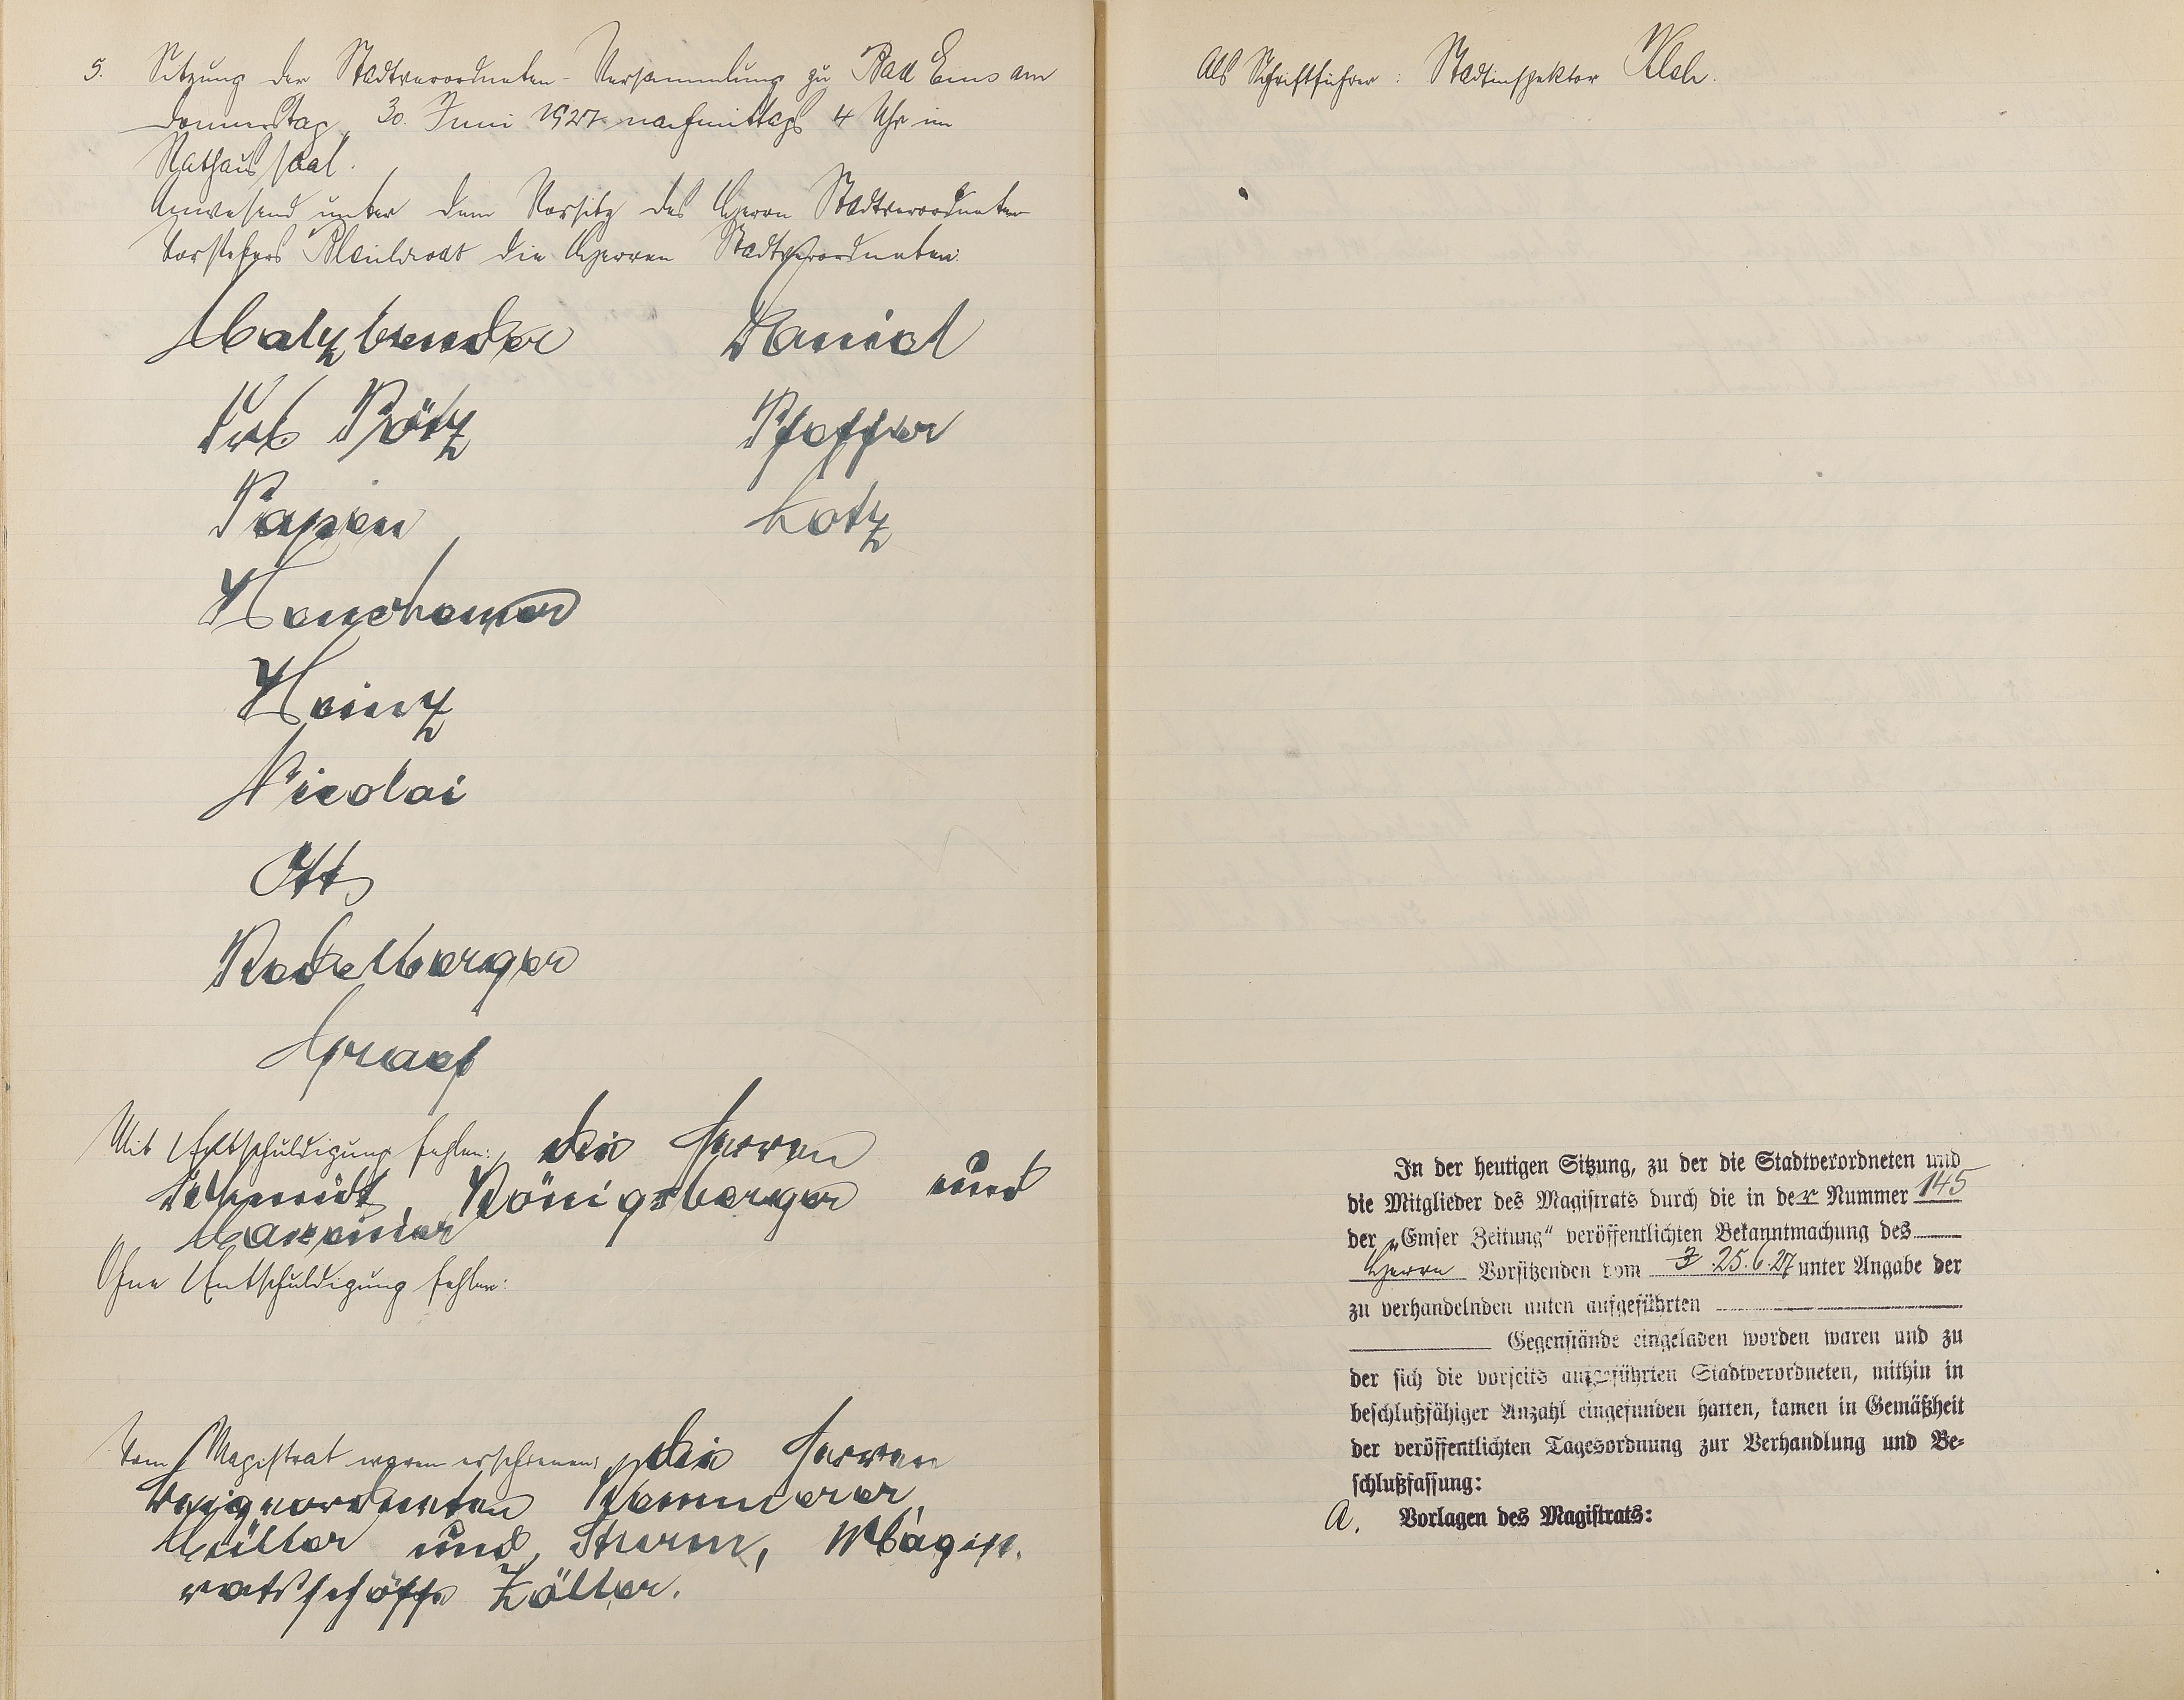 5. Sitzung der Stadtverordneten-Versammlung zu Bad Ems am
Donnerstag, 30. Juni 1927 nachmittags 4 Uhr im
Rathaussaal.
Anwesend unter dem Vorsitz des Herrn Stadtverordneten
Vorstehers die Herren Stadtverordneten:
Balzbender
Daniel
Rötz
Pfeffer
Papen
Lotz
Heinz
Nicolai
Ott
Graef
Mit Entschuldigung fehlen: die Herren
Schmidt, Königsberger und
Ohne Entschuldigung fehlen:
Vom Magistrat waren erschienen: die Herren
Beigeordneten Kemmerer,
Müller und Sturm, Magist-
ratsschöffe Zöller.
Als Schriftführer: Stadtinspektor
In der heutigen Sitzung, zu der die Stadtverordneten und
die Mitglieder des Magistrats durch die in der Nummer 145
der „Emser Zeitung“ veröffentlichten Bekanntmachung des
Herrn Vorsitzenden vom 25.6.27 unter Angabe der
zu verhandelnden unten aufgeführten
Gegenstände eingeladen worden waren und zu
der sich die vorseits aufgeführten Stadtverordneten, mithin in
beschlußfähiger Anzahl eingefunden hatten, kamen in Gemäßheit
der veröffentlichten Tagesordnung zur Verhandlung und Be-
schlußfassung:
A. Vorlagen des Magistrats: